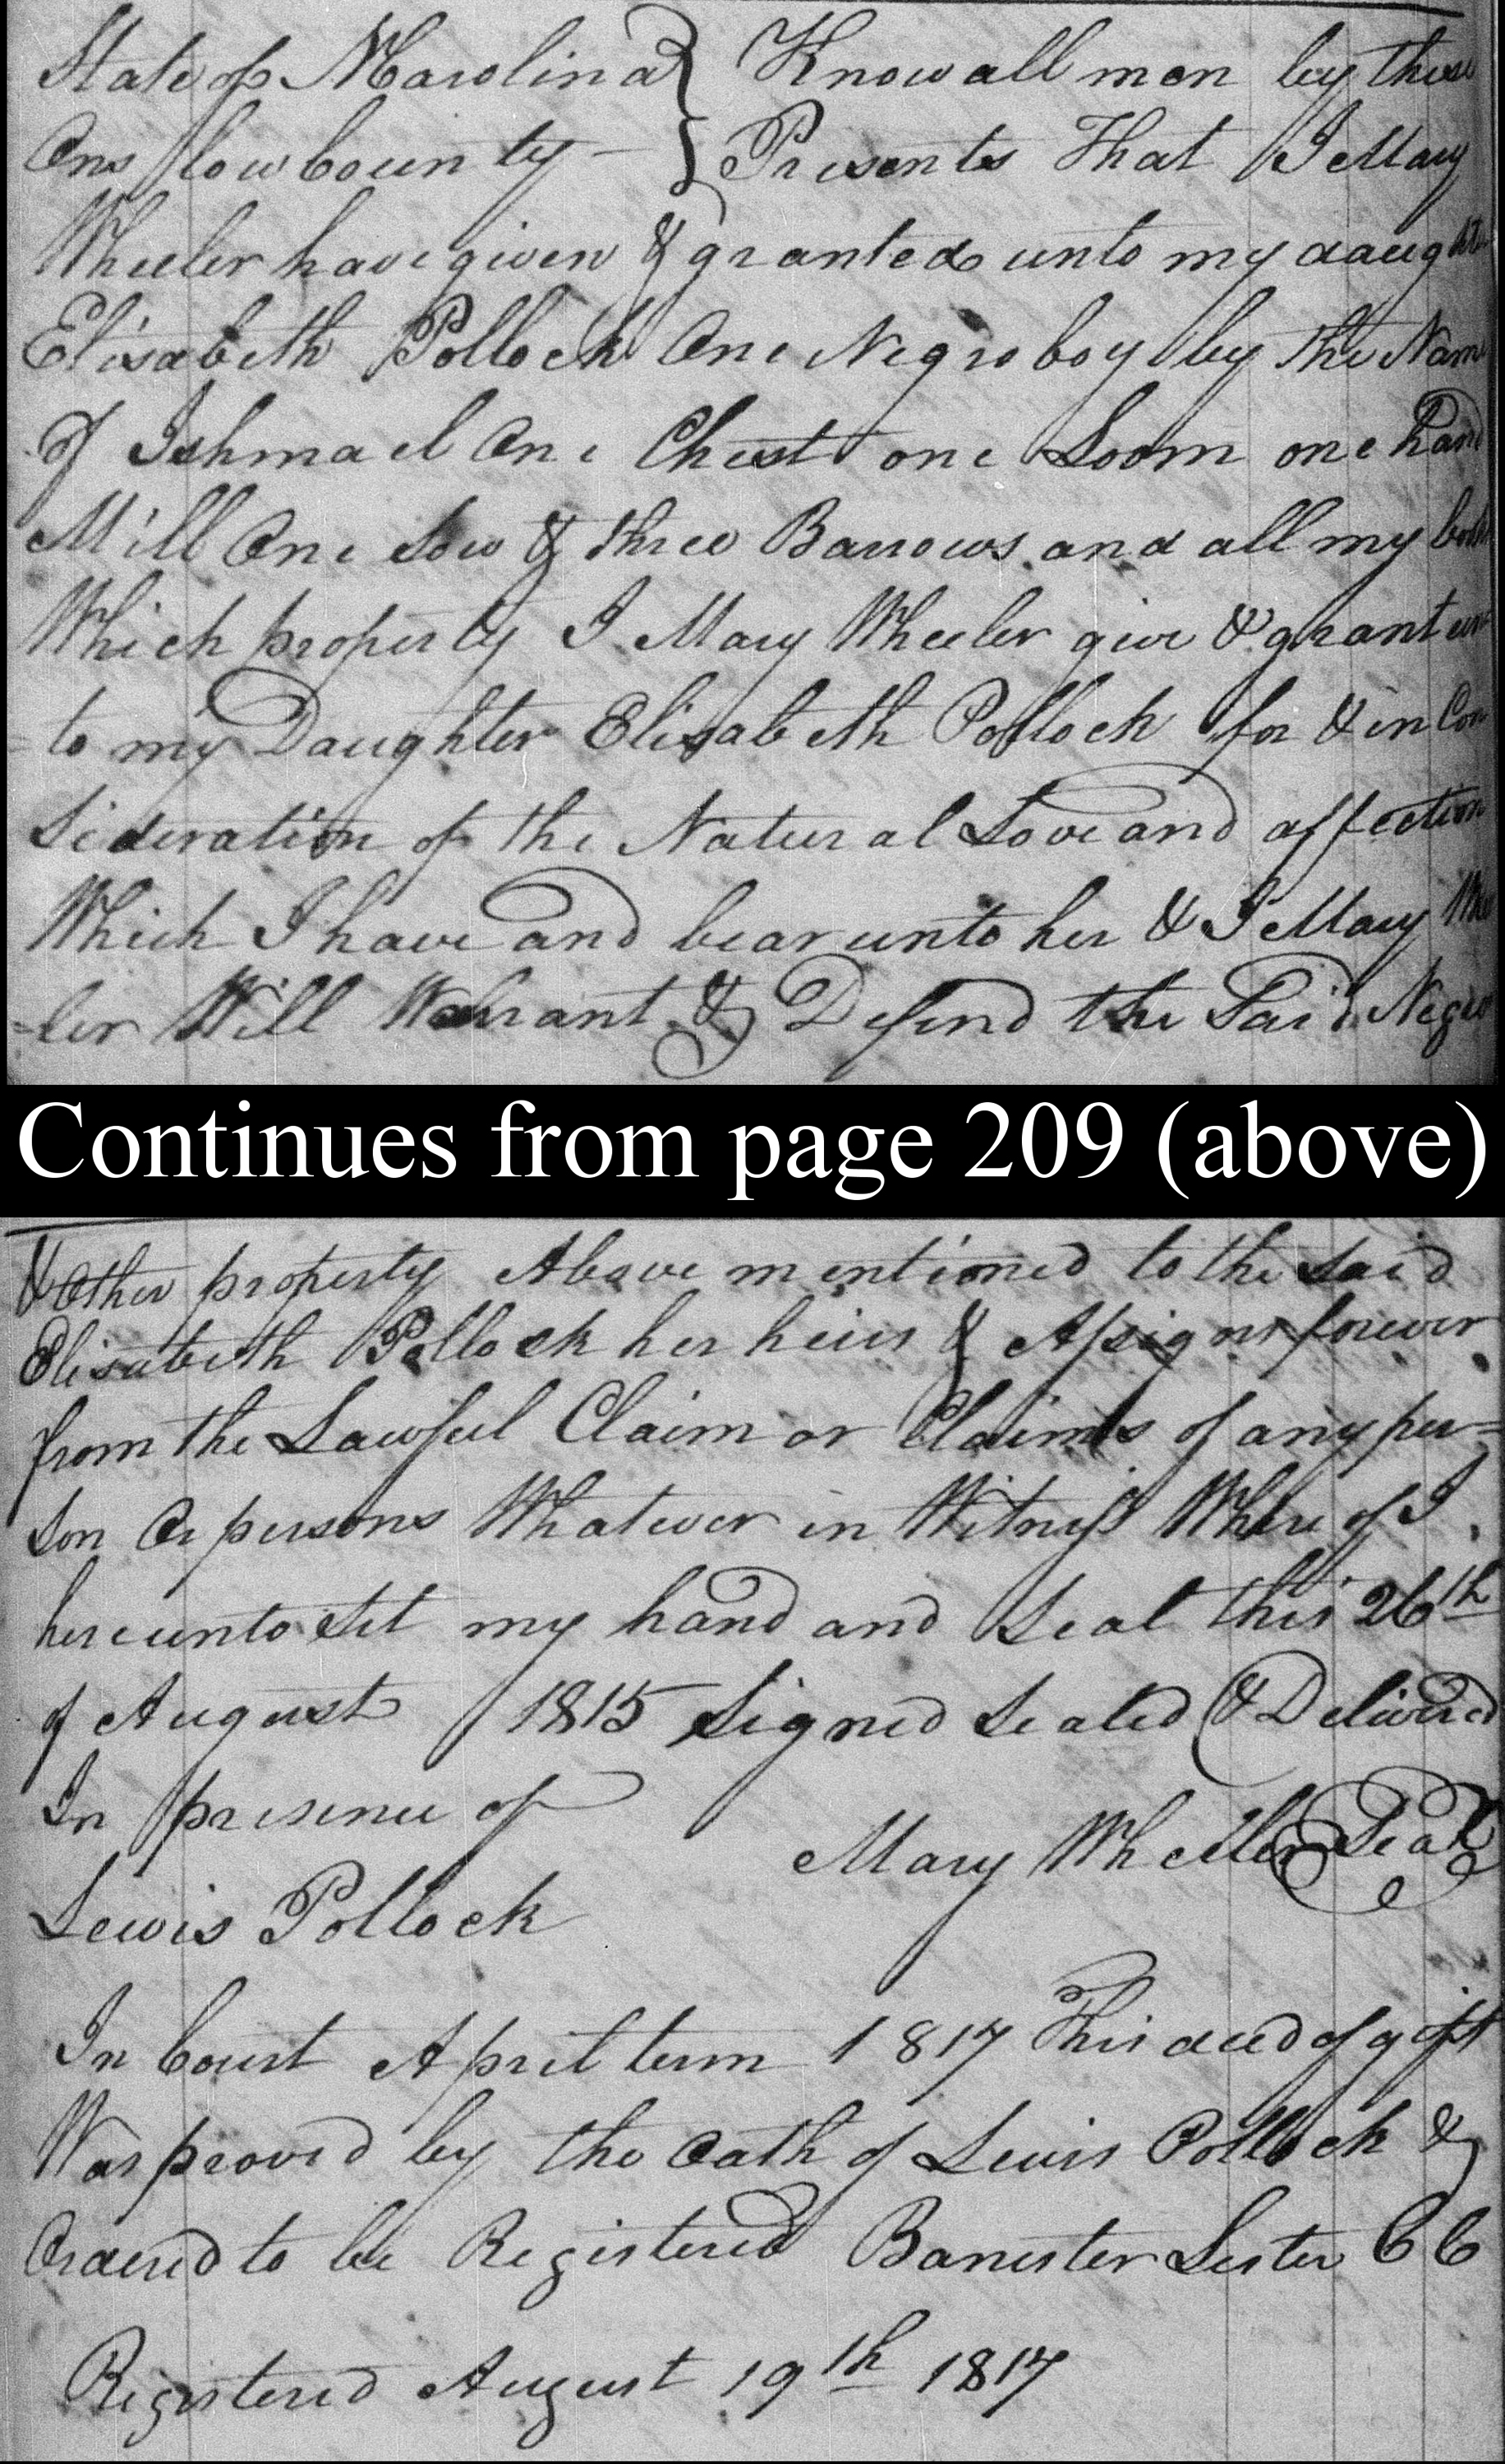 State of N Carolina } Know all men by these
Onslow County — } Presents That I Mary
Wheeler have given & granted unto my daughter
Elisabeth Pollock One Negro boy by the Name
of Ishmael One Chest one Loom one hand
Mill One Sow & three Barrows and all my
Which property I Mary Wheeler give & grant un
= to my Daughter Elisabeth Pollock for & in Con
sideration of the Natural Love and affection
Which I have and bear unto her & I Mary Whee
=ler Will Warrant & Defend the Said Negro
Continues from page 209 (above)
& Other property Above mentioned to the Said
Elisabeth Pollock her heirs & Assigns forever
from the Lawful Claim or Claims of any per=
son Or persons Whatever in Witness Where of I
hereunto Set my hand and Seal this 26th
of August 1815 Signed Sealed & Delivered
In presence of
Mary Wheeler Seal
Lewis Pollock
In Court April term 1817 This deed of gift
Was proved by the Oath of Lewis Pollock &
Ordered to be Registered Banester Lester CC
Registered August 19th 1817